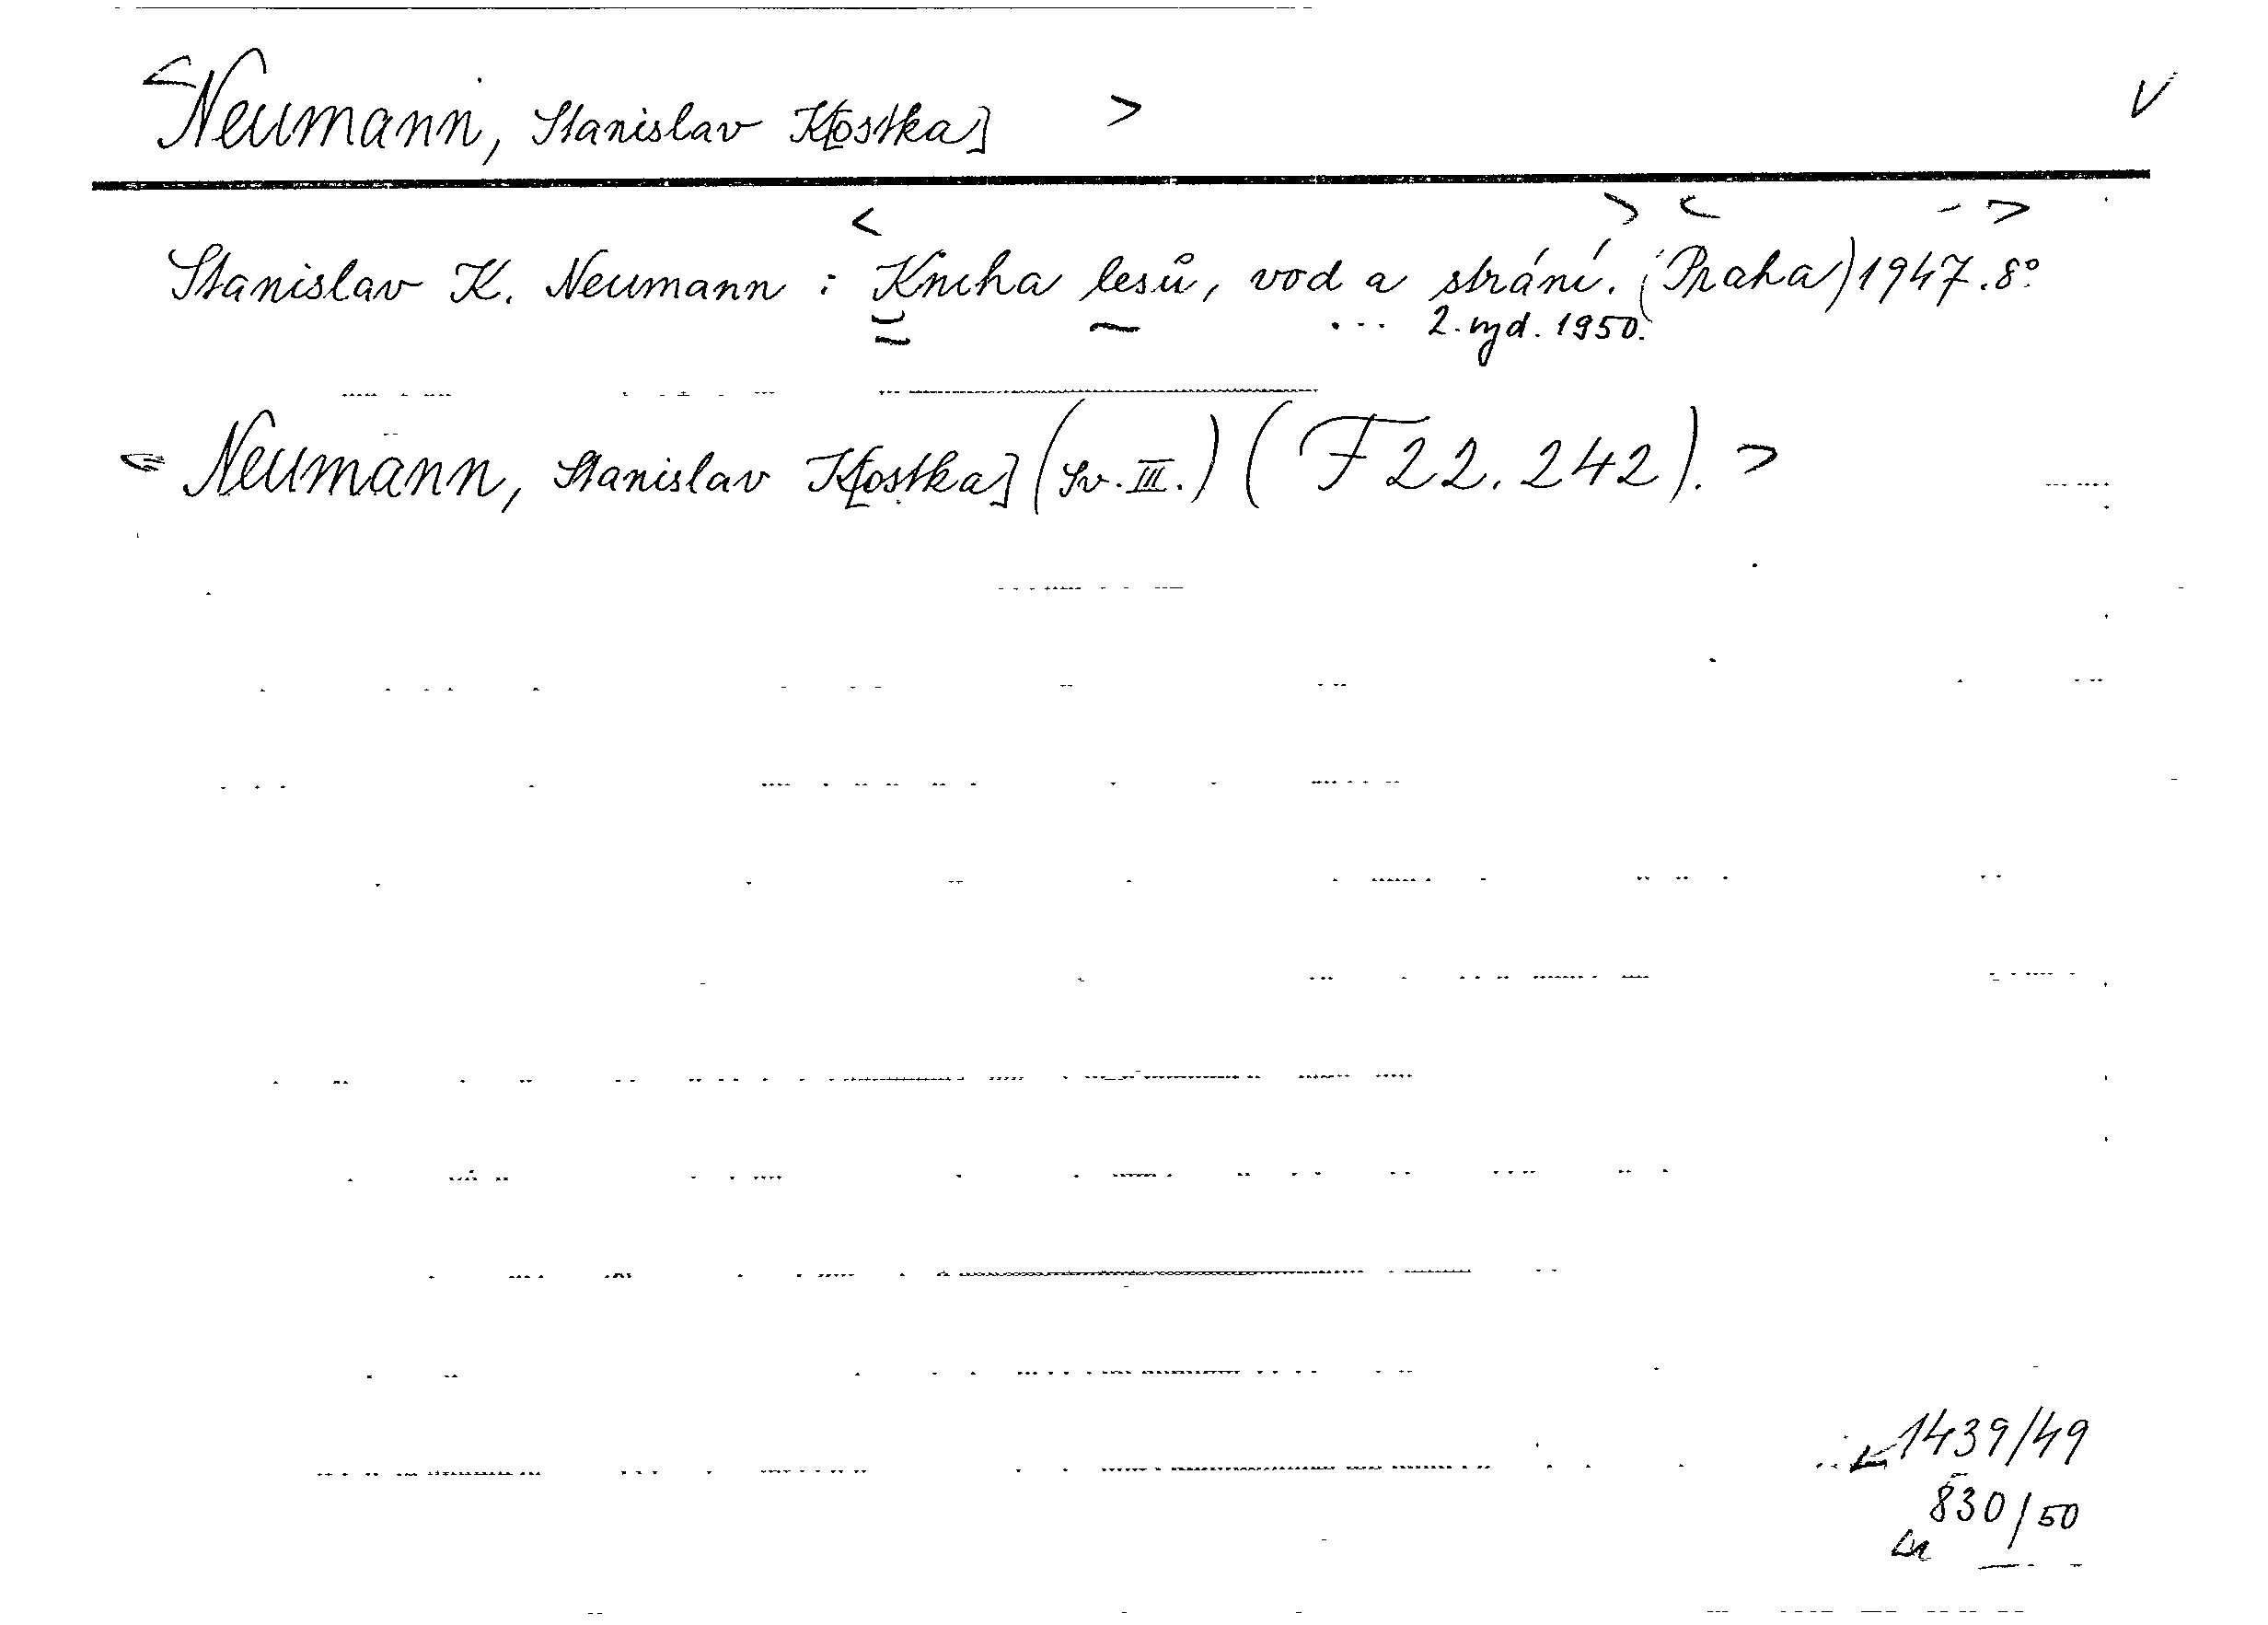 <Neumann, Stanislav K[ostka] > V
Stanislav K. Neumann : <Kniha lesů, vod a strání.> <(Praha) 1947.> 8°
... 2. vyd. 1950.
<Neumann, Stanislav K[ostka] (Sv. III.) (F 22.242).>
1439/49
830/50